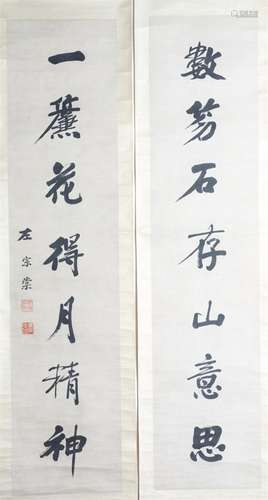 數芴石存山意思
一簾花得月精神
左宗棠